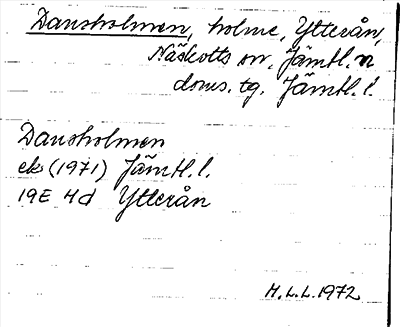 Dansholmen, holme, Ytterån,
Näskotts sn. Jämtl. n
doms. tg. Jämtl. l.
Dansholmen
ek (1971) Jämtl. l.
19E 4d Ytterån
H.L.L. 1972